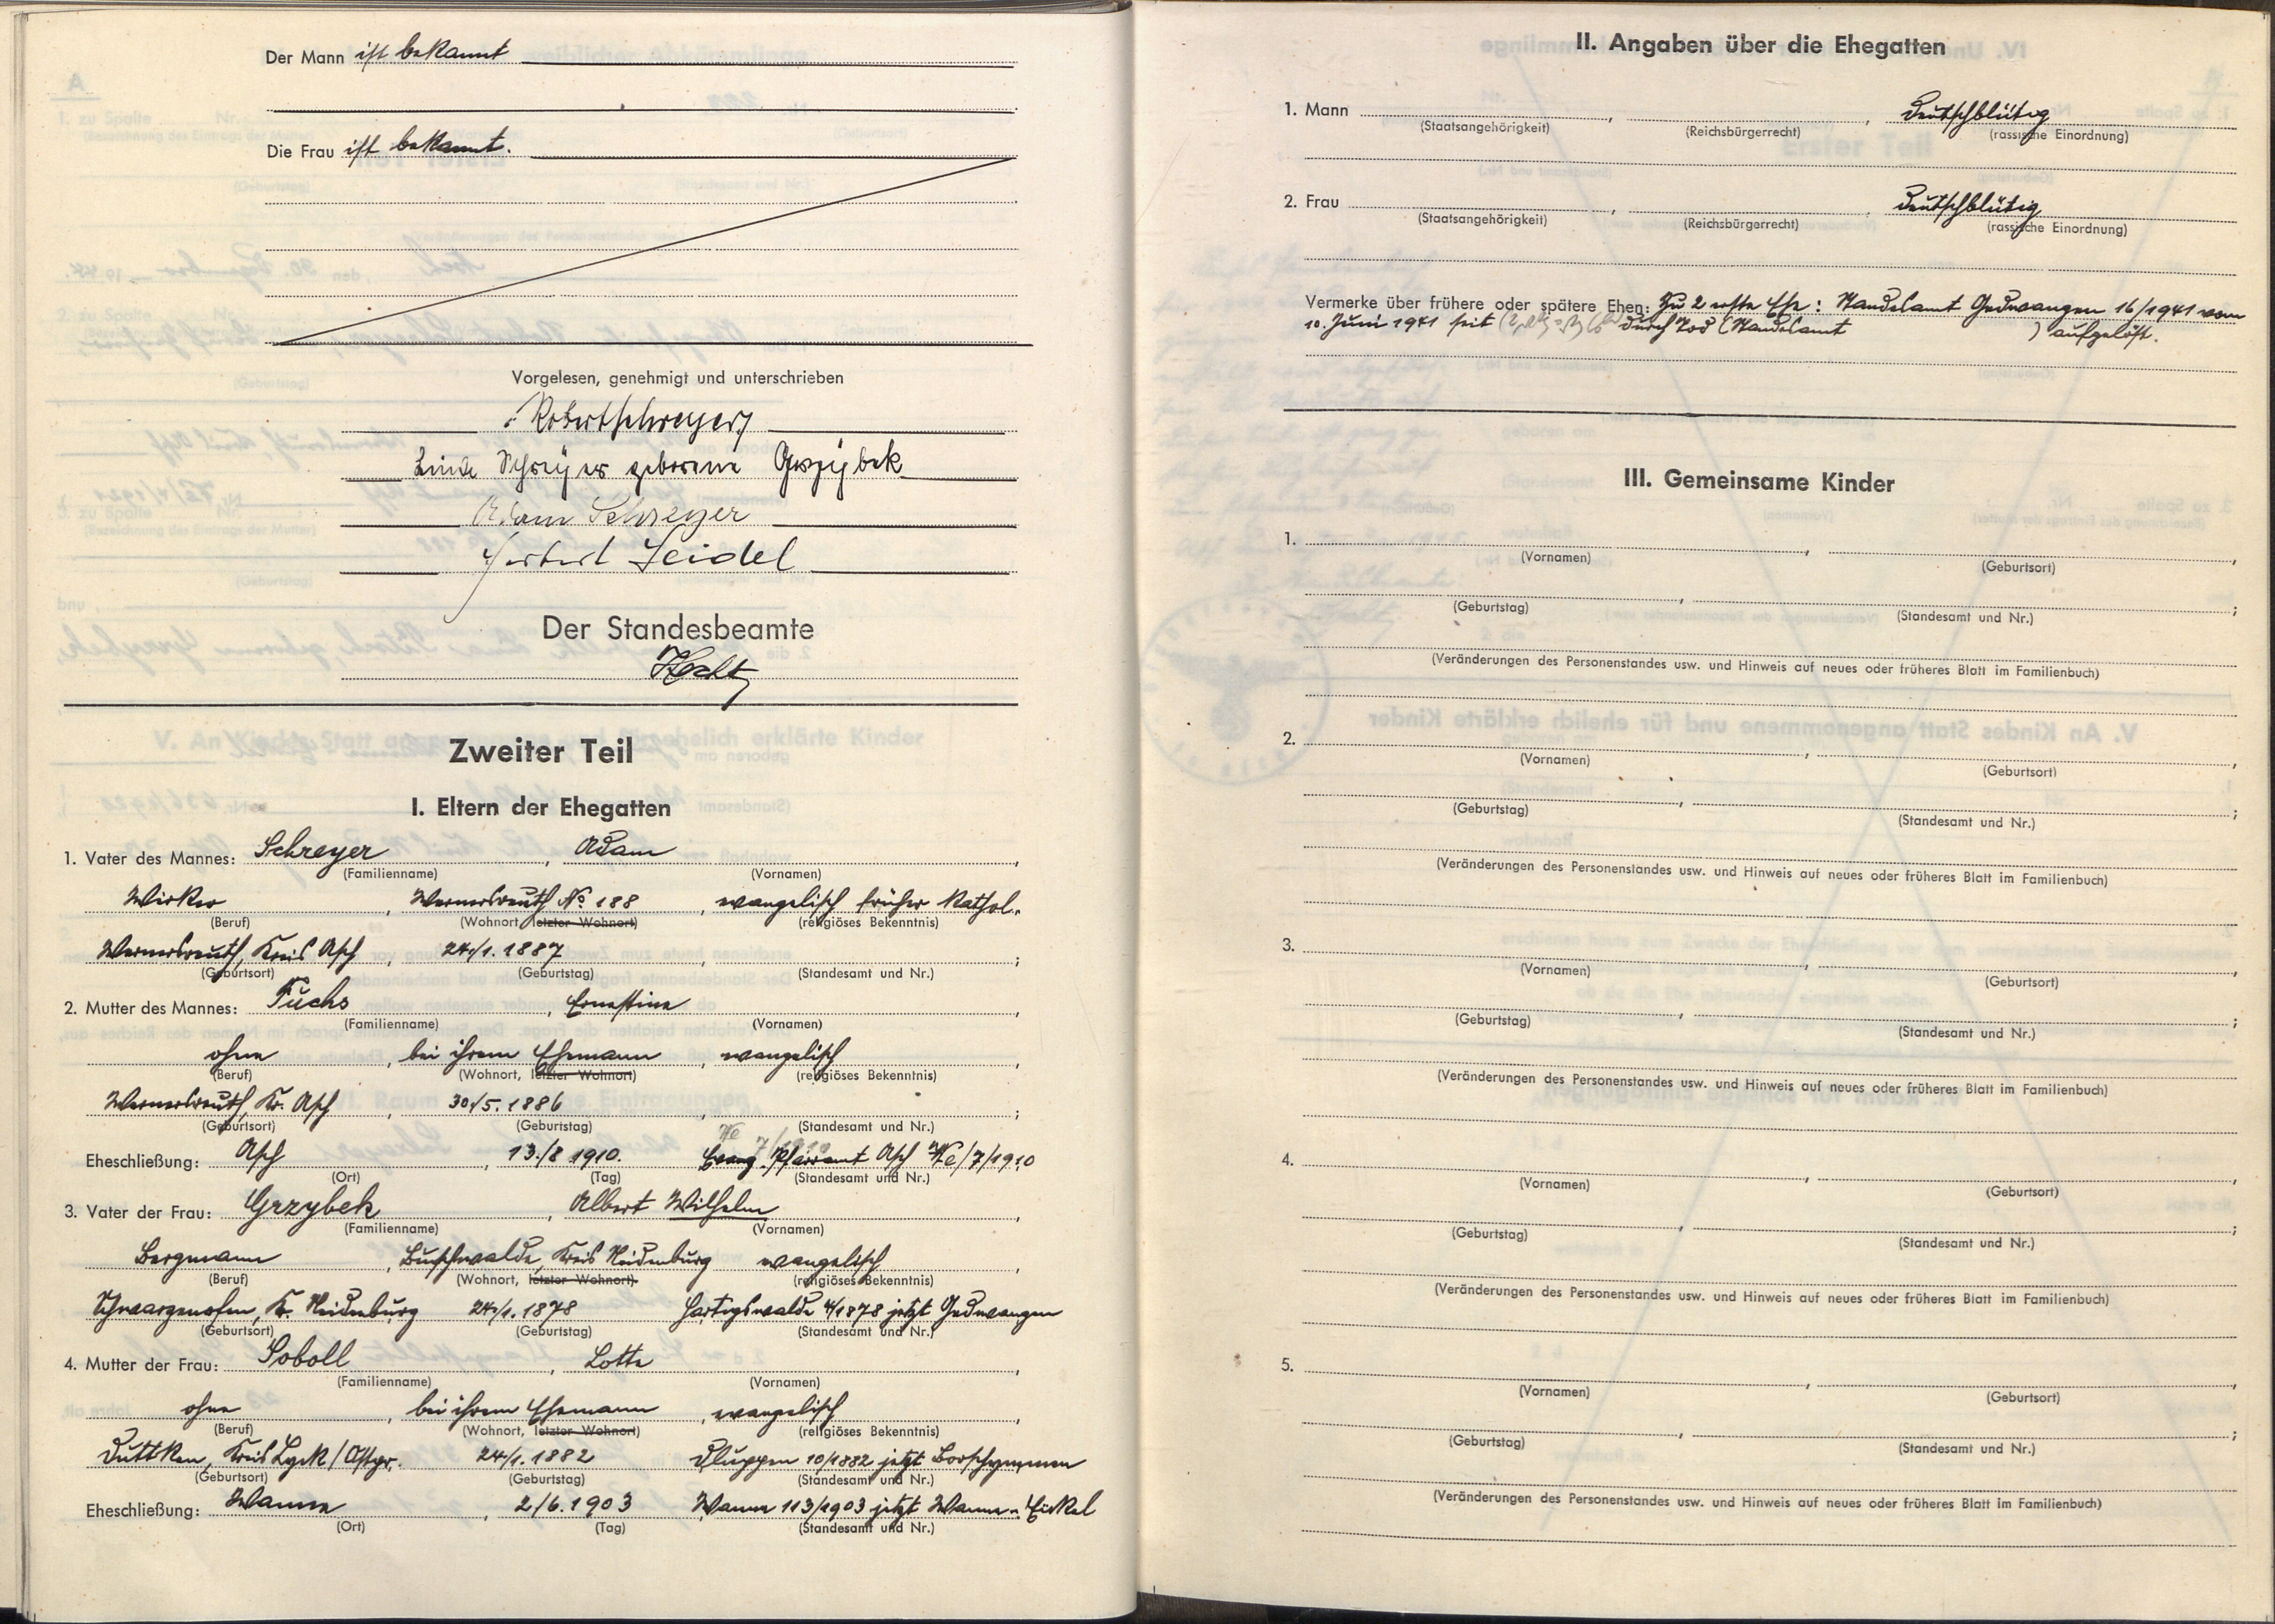 Der Mann ist bekannt
Die Frau ist bekannt.
Vorgelesen, genehmigt und unterschrieben
Robert Schreyer
Linda Schreyer geborene Grzybek
Adam Schreyer
Herbert Seidel
Der Standesbeamte
Hecht
Zweiter Teil
I. Eltern der Ehegatten
1. Vater des Mannes: Schreyer, Adam,
(Familienname) (Vornamen)
Wirker, Wernersreuth No 188, evangelisch früher kathol.
(Beruf) (Wohnort, letzter Wohnort) (religiöses Bekenntnis)
Wernersreuth, Kreis Asch, 24./1. 1887;
(Geburtsort) (Geburtstag) (Standesamt und Nr.)
2. Mutter des Mannes: Fuchs, Ernestine,
(Familienname) (Vornamen)
ohne, bei ihrem Ehemann, evangelisch,
(Beruf) (Wohnort, letzter Wohnort) (religiöses Bekenntnis)
Wernersreuth, Kr. Asch, 30./5. 1886,;
(Geburtsort) (Geburtstag) (Standesamt und Nr.)
Eheschließung: Asch, 13./8 1910. Evang. Pfarramt Asch We/7/1910
(Ort) (Tag) (Standesamt und Nr.)
3. Vater der Frau: Grzybek, Albert Wilhelm,
(Familienname) (Vornamen)
Bergmann, Buschwalde, Kreis Neidenburg evangelisch,
(Beruf) (Wohnort, letzter Wohnort) (religiöses Bekenntnis)
Schwarzenofen, Kr. Neidenburg 24./1. 1878 Hartigswalde 4/1878 jetzt Gedwangen
(Geburtsort) (Geburtstag) (Standesamt und Nr.)
4. Mutter der Frau: Soboll, Lotte,
(Familienname) (Vornamen)
ohne, bei ihrem Ehemann, evangelisch,
(Beruf) (Wohnort, letzter Wohnort) (religiöses Bekenntnis)
Duttken, Kreis Lyck/Ostpr. 24/1. 1882 Dluggen 10/1882 jetzt Borschymmen
(Geburtsort) (Geburtstag) (Standesamt und Nr.)
Eheschließung: Wanne, 2/6. 1903 Wanne 113/1903 jetzt Wanne-Eickel
(Ort) (Tag) (Standesamt und Nr.)
II. Angaben über die Ehegatten
1. Mann, , deutschblütig
(Staatsangehörigkeit) (Reichsbürgerrecht) (rassische Einordnung)
2. Frau, , deutschblütig
(Staatsangehörigkeit) (Reichsbürgerrecht) (rassische Einordnung)
Vermerke über frühere oder spätere Ehen: Zu 2 erste Ehe: Standesamt Gedwangen 16/1941 vom
10. Juni 1941 seit durch Tod (Standesamt ) aufgelöst.
III. Gemeinsame Kinder
1. , ,
(Vornamen) (Geburtsort)
, ;
(Geburtstag) (Standesamt und Nr.)
(Veränderungen des Personenstandes usw. und Hinweis auf neues oder früheres Blatt im Familienbuch)
2. , ,
(Vornamen) (Geburtsort)
, ;
(Geburtstag) (Standesamt und Nr.)
(Veränderungen des Personenstandes usw. und Hinweis auf neues oder früheres Blatt im Familienbuch)
3. , ,
(Vornamen) (Geburtsort)
, ;
(Geburtstag) (Standesamt und Nr.)
(Veränderungen des Personenstandes usw. und Hinweis auf neues oder früheres Blatt im Familienbuch)
4. , ,
(Vornamen) (Geburtsort)
, ;
(Geburtstag) (Standesamt und Nr.)
(Veränderungen des Personenstandes usw. und Hinweis auf neues oder früheres Blatt im Familienbuch)
5. , ,
(Vornamen) (Geburtsort)
, ;
(Geburtstag) (Standesamt und Nr.)
(Veränderungen des Personenstandes usw. und Hinweis auf neues oder früheres Blatt im Familienbuch)